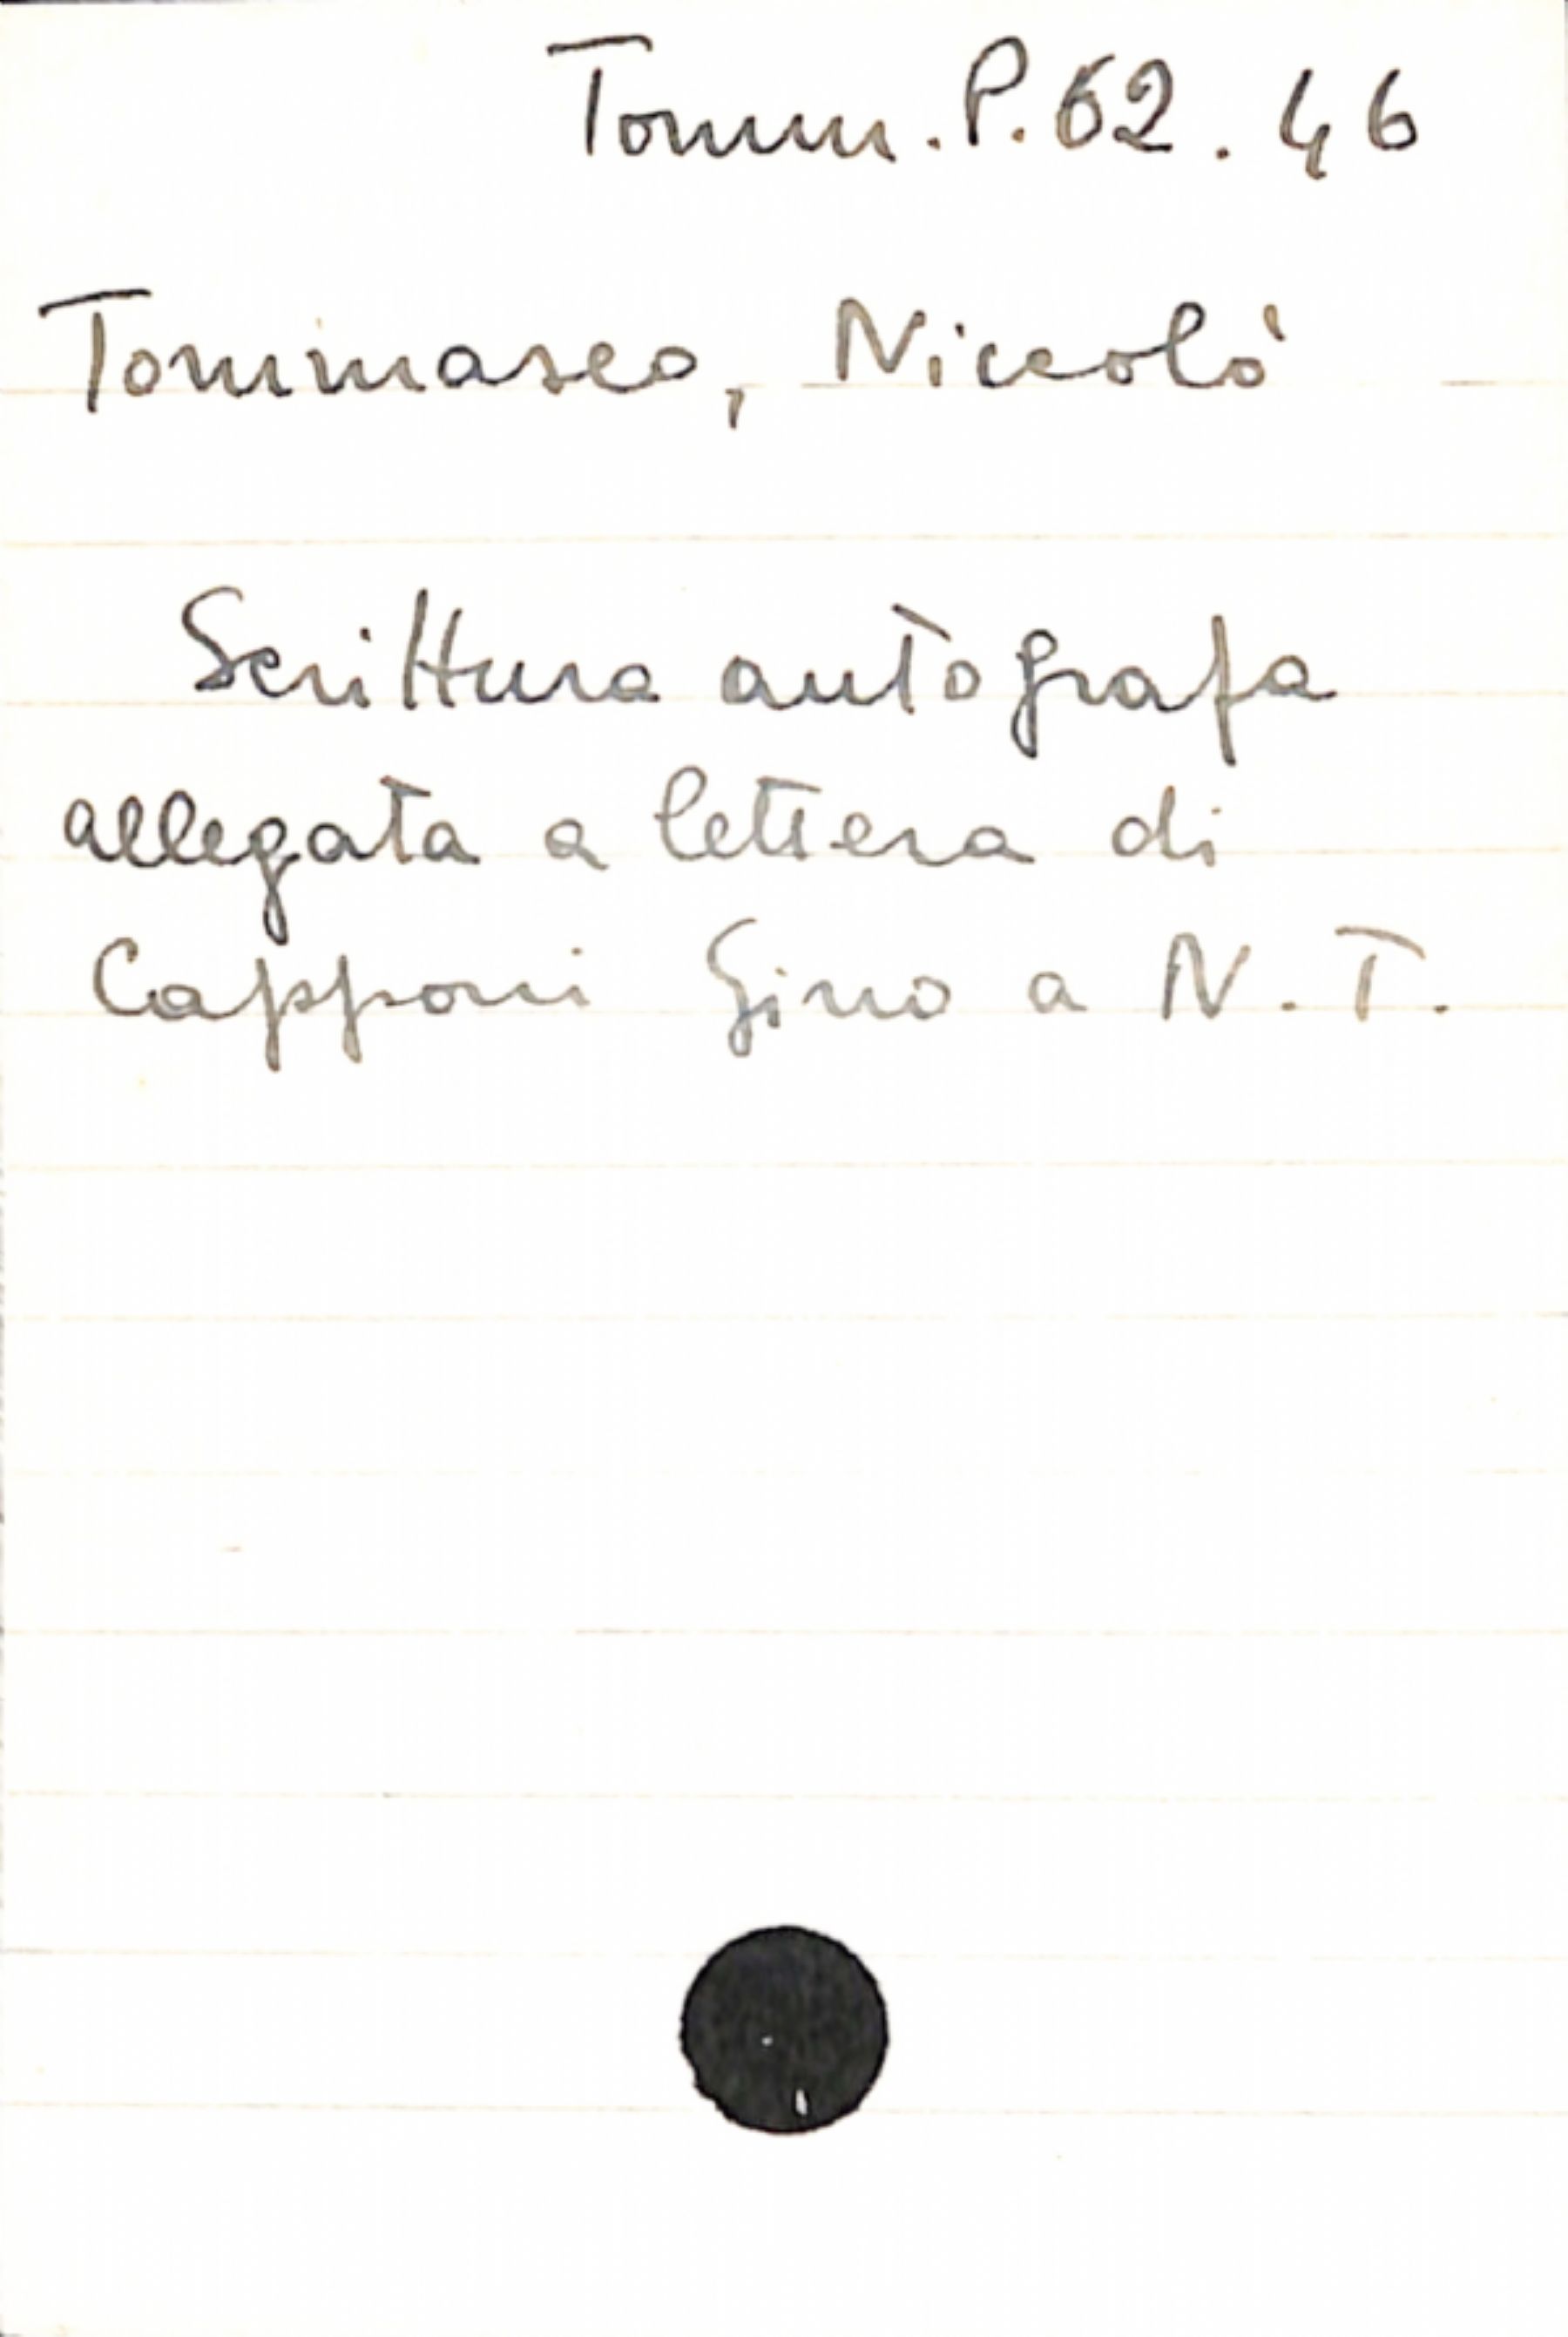 Tomm. P. 62. 46
Tommaseo, Niccolò
Scrittura autografa
allegata a lettera di
Capponi Gino a N. T.